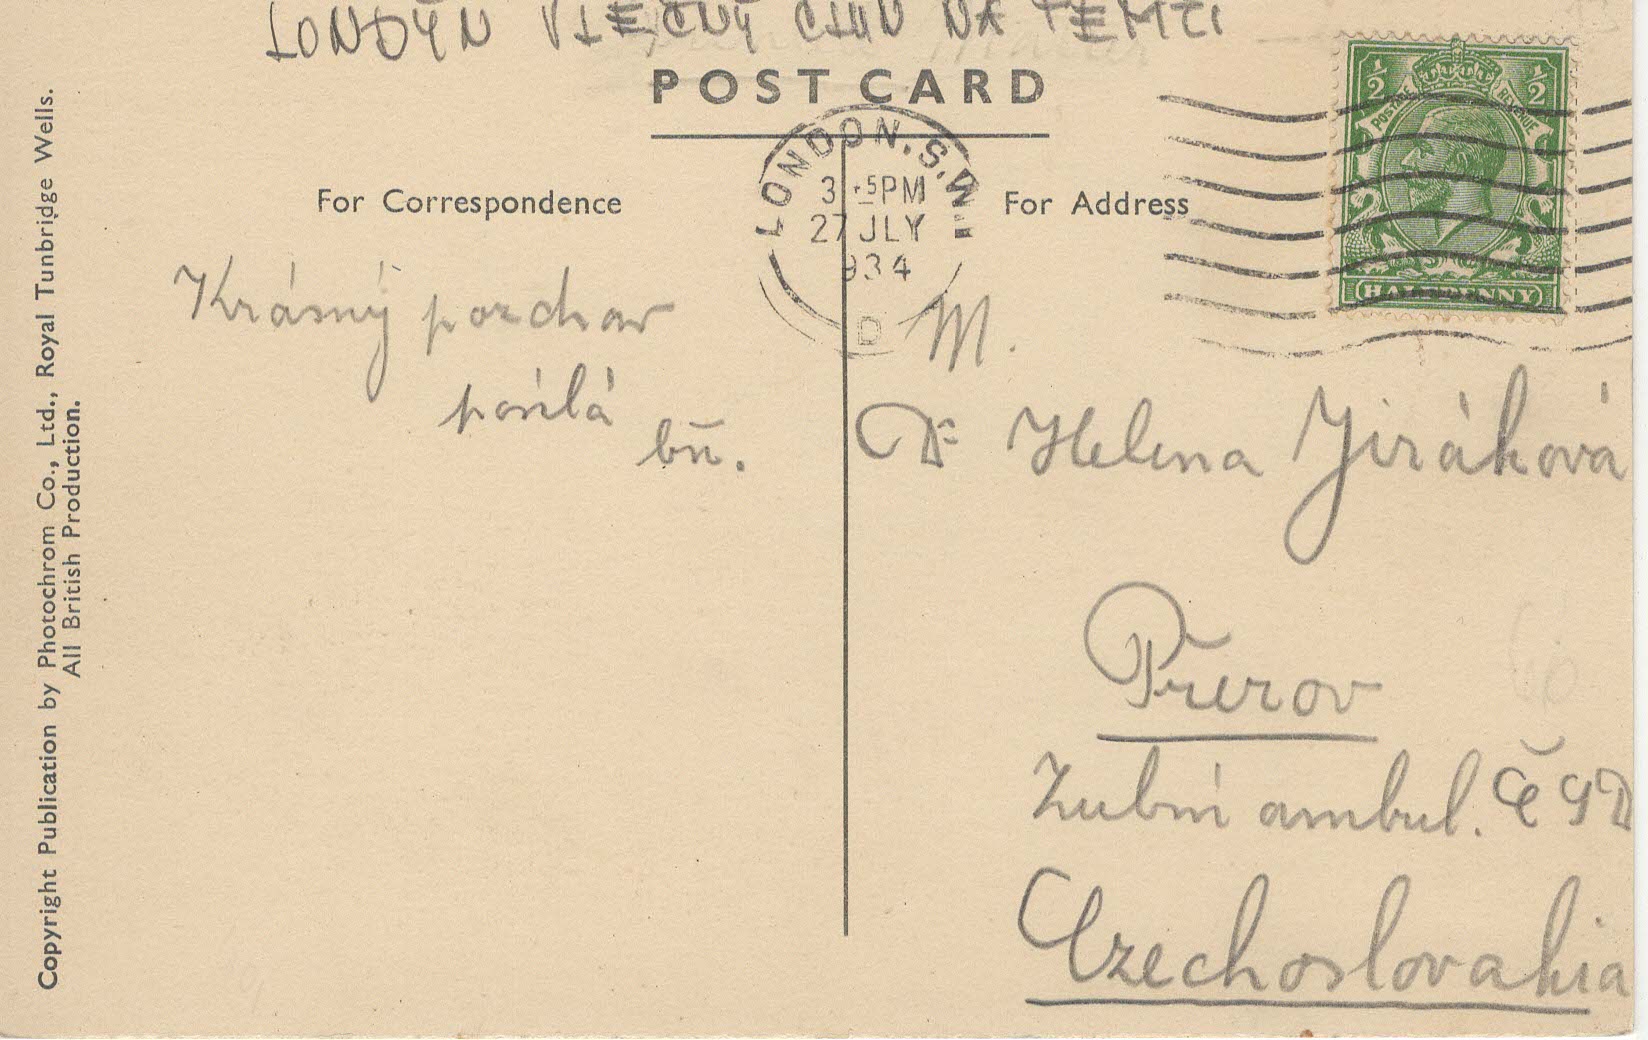 LONDÝN VLEČNÝ ČLUN NA TEMŽI
POST CARD
For Correspondence
For Address
LONDON. S.W.1
3 15PM
27 JLY
1934
D
½ ½
POSTAGE REVENUE
HALFPENNY
Krásný pozdrav
posílá
bñ.
M.
Dr Helena Jiráková
Přerov
Zubní ambul. ČSD
Czechoslovakia
Copyright Publication by Photochrom Co., Ltd., Royal Tunbridge Wells.
All British Production.